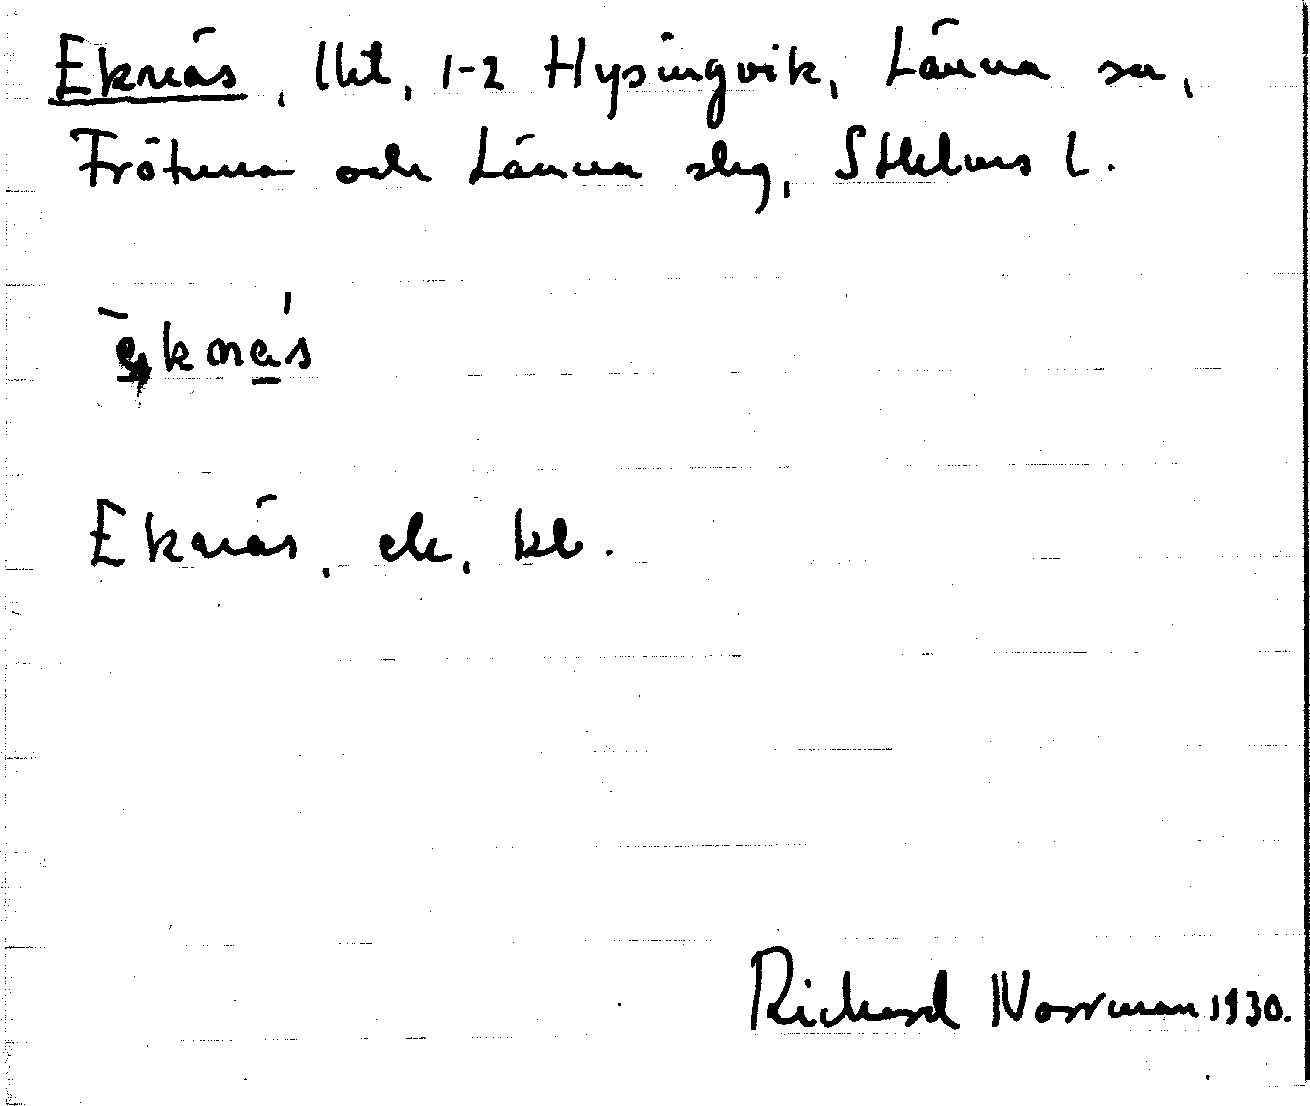 Eknäs, lht, 1-2 Hysingvik, Länna sn,
Frötuna och Länna slg, Sthlms l.
Eknäs, ek. bl.
Richard Norrman 1930.